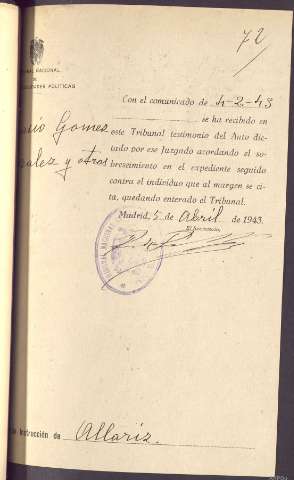 72
NACIONAL
POLITICAS
Con el comunicado de 4-2-43
se ha recibido en
este Tribunal testimonio del Auto dic-
tado por ese Juzgado acordando el so-
breseimiento en el expediente seguido
contra el individuo que al margen se ci-
ta, quedando enterado el Tribunal.
Gomez
y otros
Madrid, 5 de Abril de 1943.
El Secretario,
TRIBUNAL NACIONAL
Instrucción de Allariz.